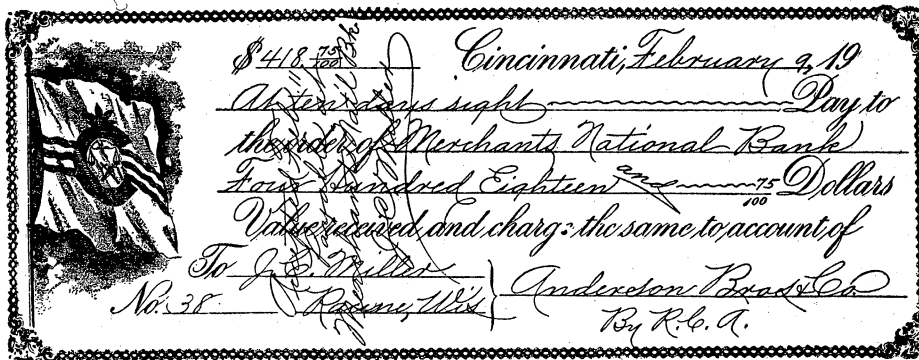 $418 75/100 Cincinnati, February 9, 19
At ten days sight Pay to
the order of Merchants National Bank
Four Hundred Eighteen and 75/100 Dollars
Value received, and charge the same to account of
To J. E. Miller
No. 38 Racine, Wis Anderson Bros & Co
By R. C. A.